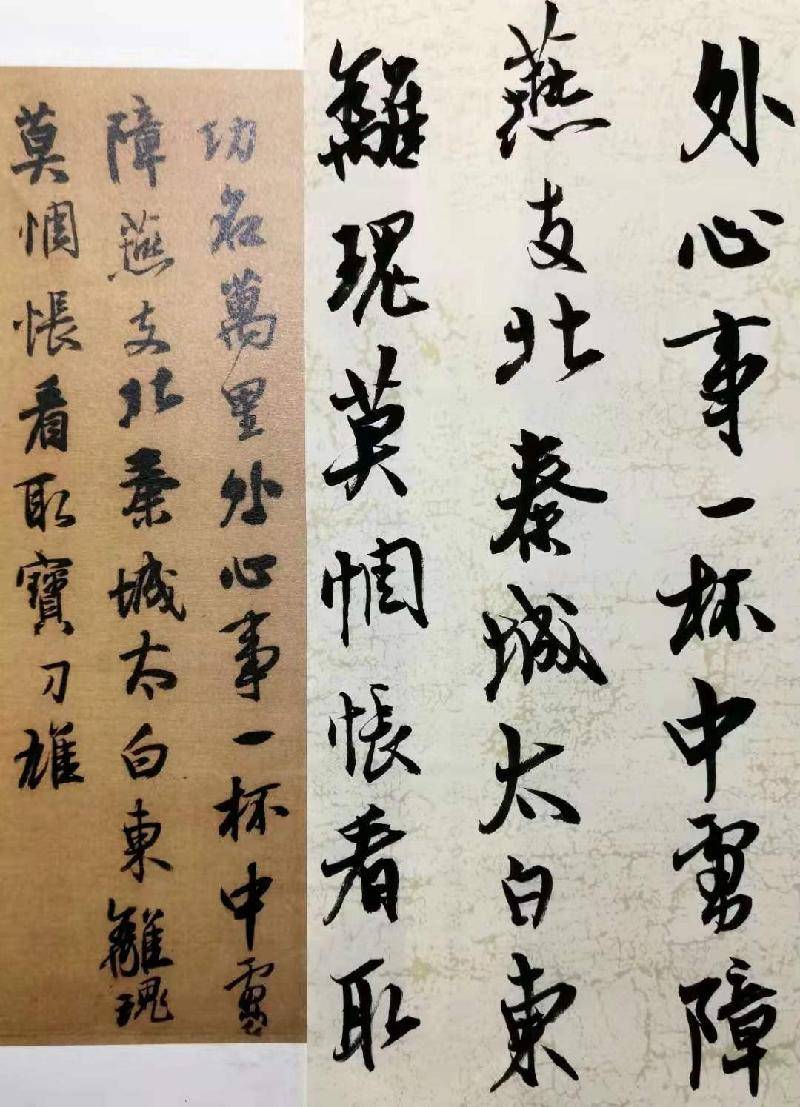 外心事一杯中虜障
燕支北秦城太白東
離魂莫惆悵看取
功名萬里外心事一杯中虜
障燕支北秦城太白東離魂
莫惆悵看取寶刀雄